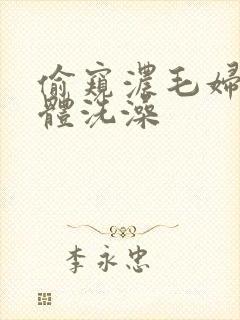 偷窺濃毛婦
體洗澡
李永忠